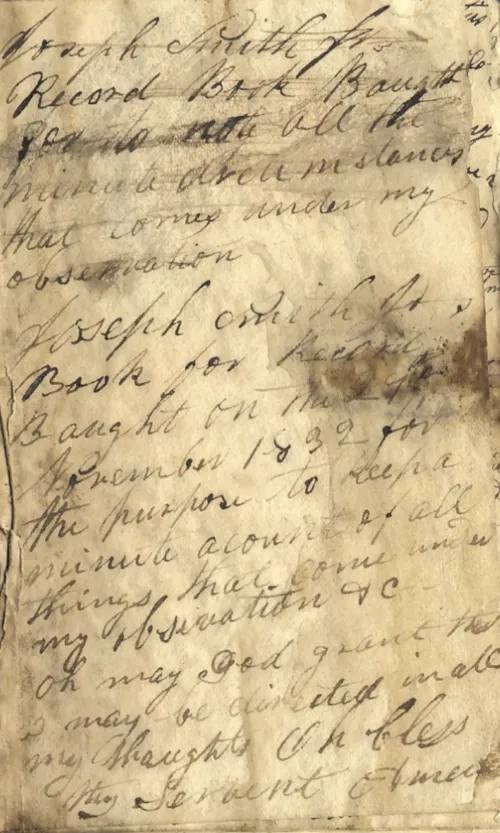 Joseph Smith Jr–
Record Book Baught
for to note all the
minute circumstances
that comes under my
observation
Joseph Smith Jrs
Book for Record
Baught on the
November 1832 for
the purpose to keep a
minute acount of all
things that come under
my obsivation &c–
oh may God grant that
I may be directed in all
my thaughts Oh bless
thy Servent Amen